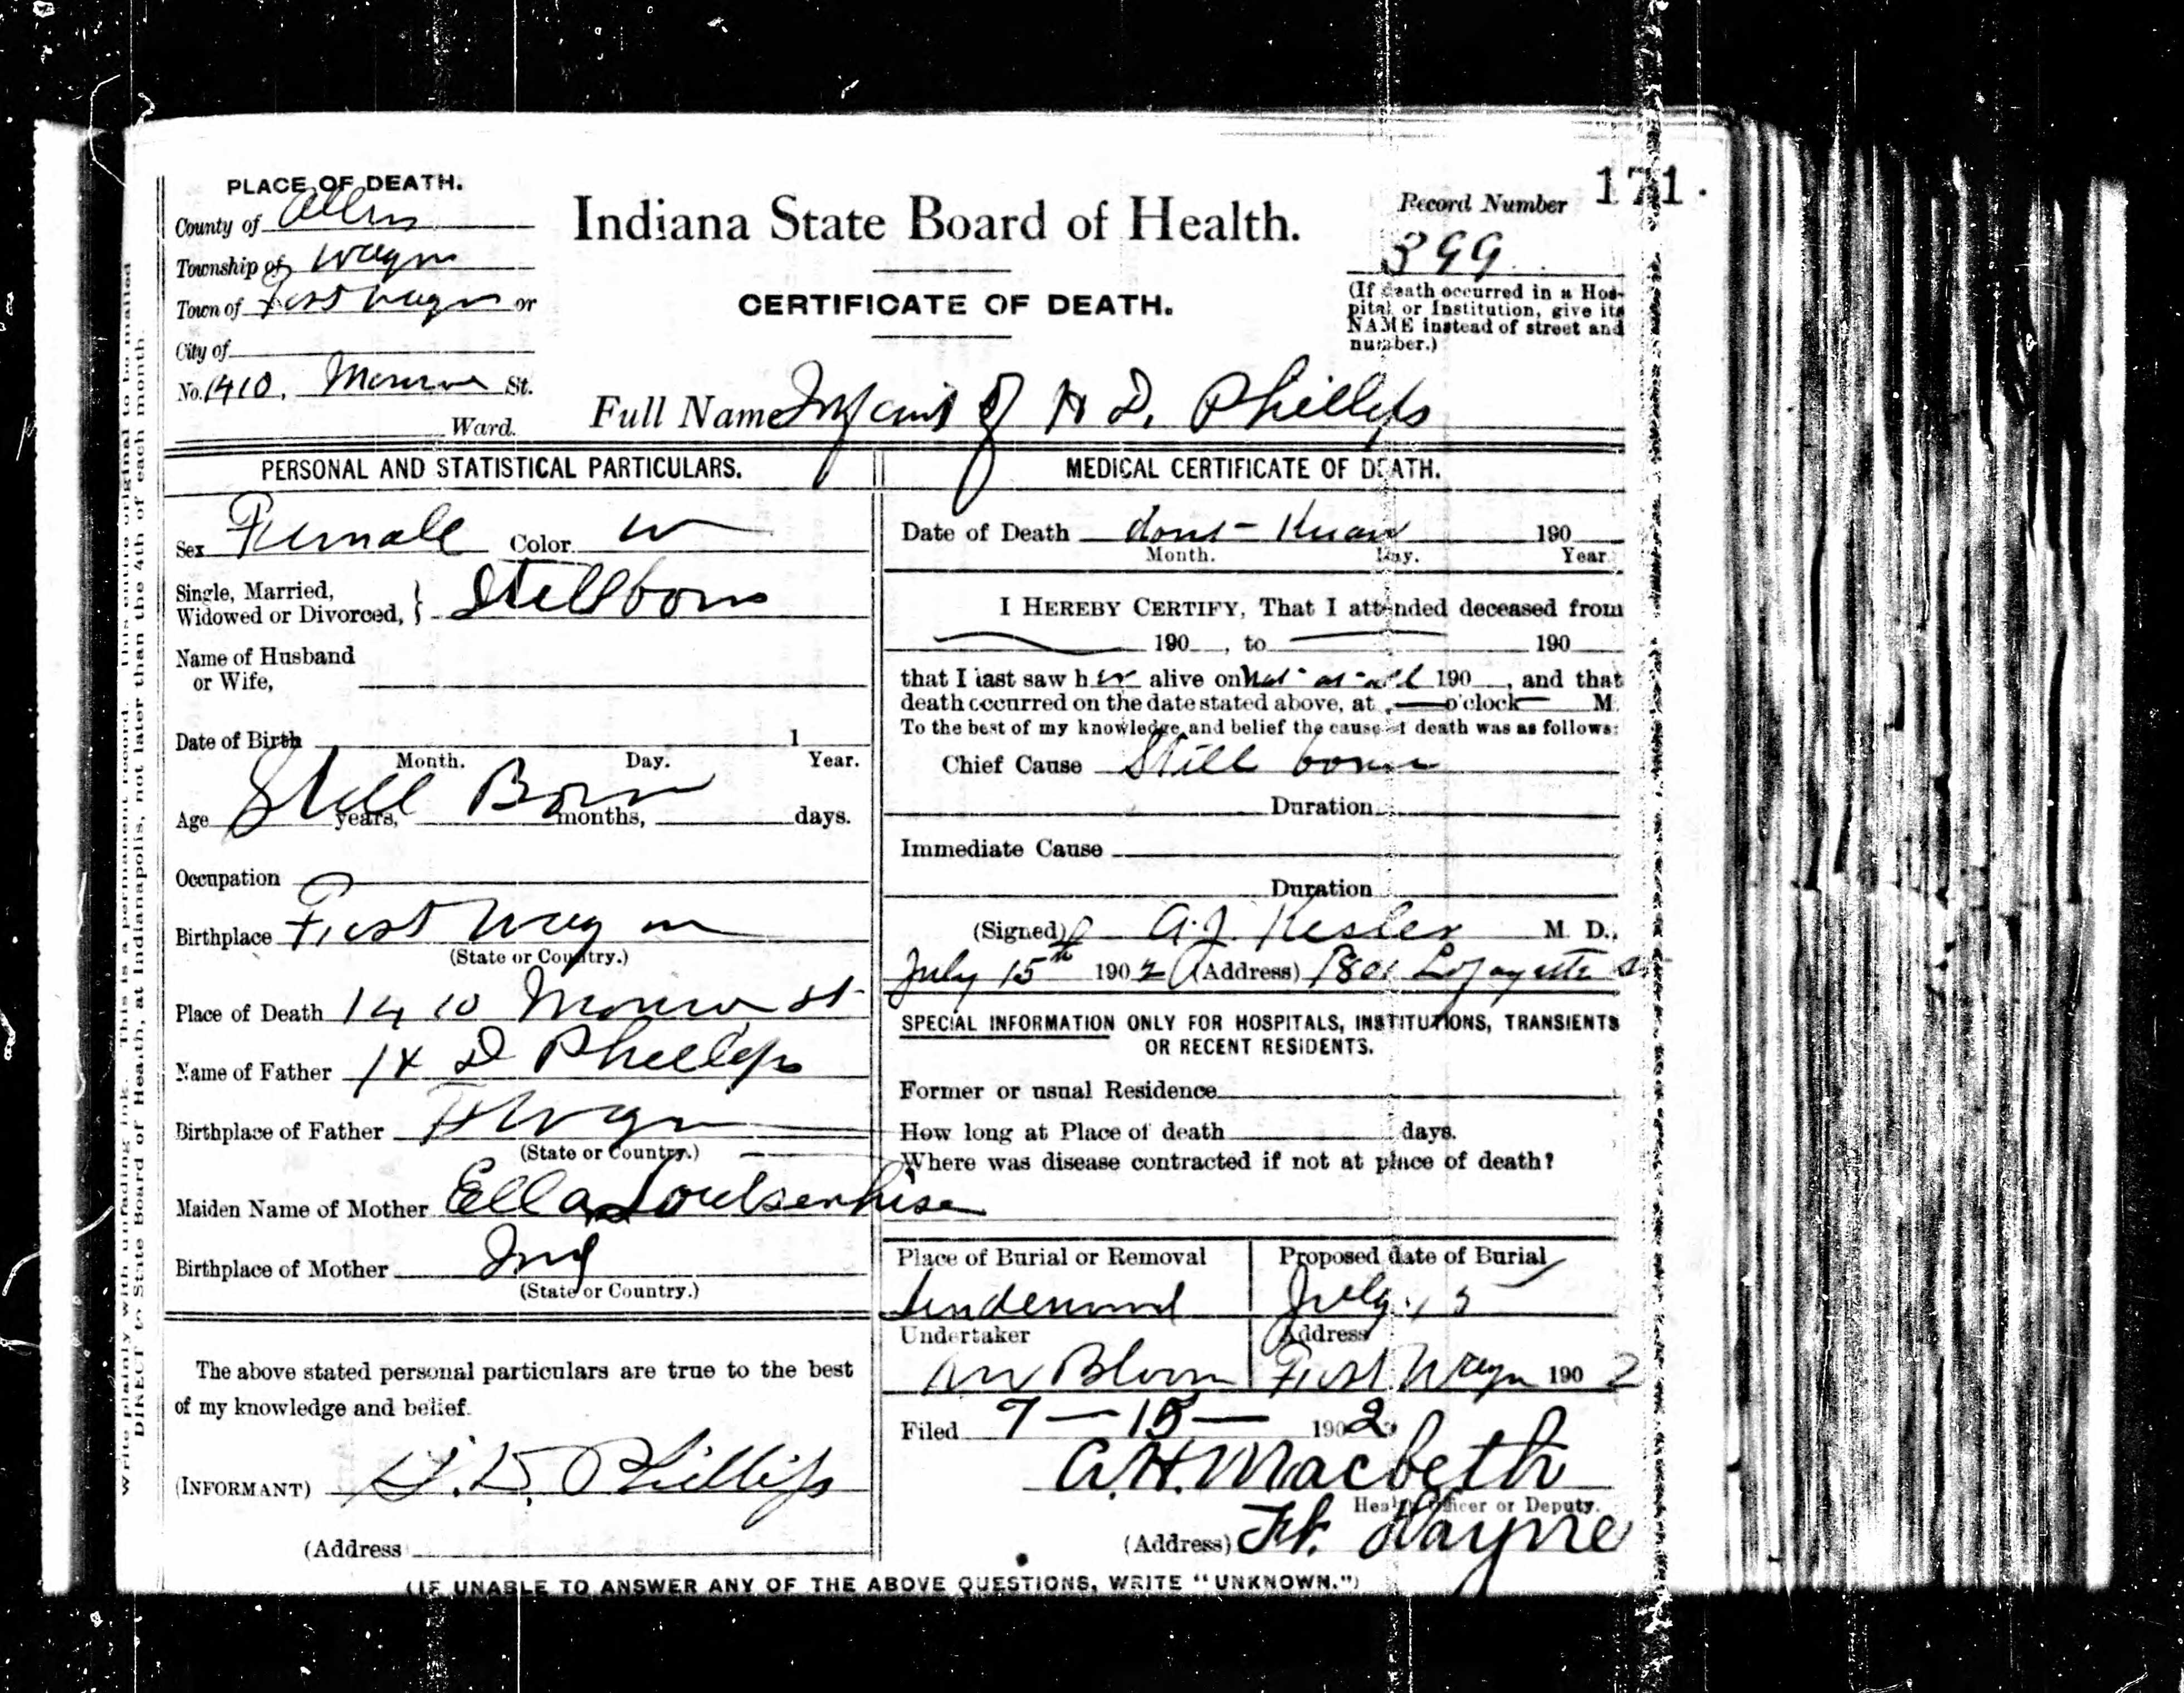 171.
PLACE OF DEATH.
County of Allen
Township of Wayne
Town of Fort Wayne or
City of
No. 1410, Monroe St.
Ward.
Indiana State Board of Health.
CERTIFICATE OF DEATH.
Record Number
399
(If death occurred in a Hos-
pital or Institution, give its
NAME instead of street and
number.)
Full Name Infant of H D. Phillips
PERSONAL AND STATISTICAL PARTICULARS.
Sex Female Color W
Single, Married,
Widowed or Divorced, } Stillborn
Name of Husband
or Wife,
Date of Birth 1
Month. Day. Year.
Age Still Born years, months, days.
Occupation
Birthplace Fort Wayne
(State or Country.)
Place of Death 1410 Monroe St
Name of Father H D Phillips
Birthplace of Father Ft Wayne
(State or Country.)
Maiden Name of Mother Ella
Birthplace of Mother Ind
(State or Country.)
The above stated personal particulars are true to the best
of my knowledge and belief.
(INFORMANT) H. D. Phillips
(Address
MEDICAL CERTIFICATE OF DEATH.
Date of Death dont - Know 190
Month. Day. Year.
I HEREBY CERTIFY, That I attended deceased from
190 , to 190
that I last saw her alive on Not - at - all 190 , and that
death occurred on the date stated above, at o'clock M.
To the best of my knowledge and belief the cause of death was as follows:
Chief Cause Still born
Duration
Immediate Cause
Duration
(Signed) A. J. Kesler M. D.,
July 15th 1902 (Address) 1801 Lafayette St
SPECIAL INFORMATION ONLY FOR HOSPITALS, INSTITUTIONS, TRANSIENTS
OR RECENT RESIDENTS.
Former or usual Residence
How long at Place of death days.
Where was disease contracted if not at place of death?
Place of Burial or Removal Proposed date of Burial
Lindenwood July 15
Undertaker Address
Bloom Fort Wayne 1902
Filed 7-15- 1902
A. H. Macbeth
Health Officer or Deputy.
(Address) Ft. Wayne
(IF UNABLE TO ANSWER ANY OF THE ABOVE QUESTIONS, WRITE "UNKNOWN.")
Write plainly with unfading ink. This is a permanent record. This entire original to be mailed
DIRECT to State Board of Health, at Indianapolis, not later than the 4th of each month.